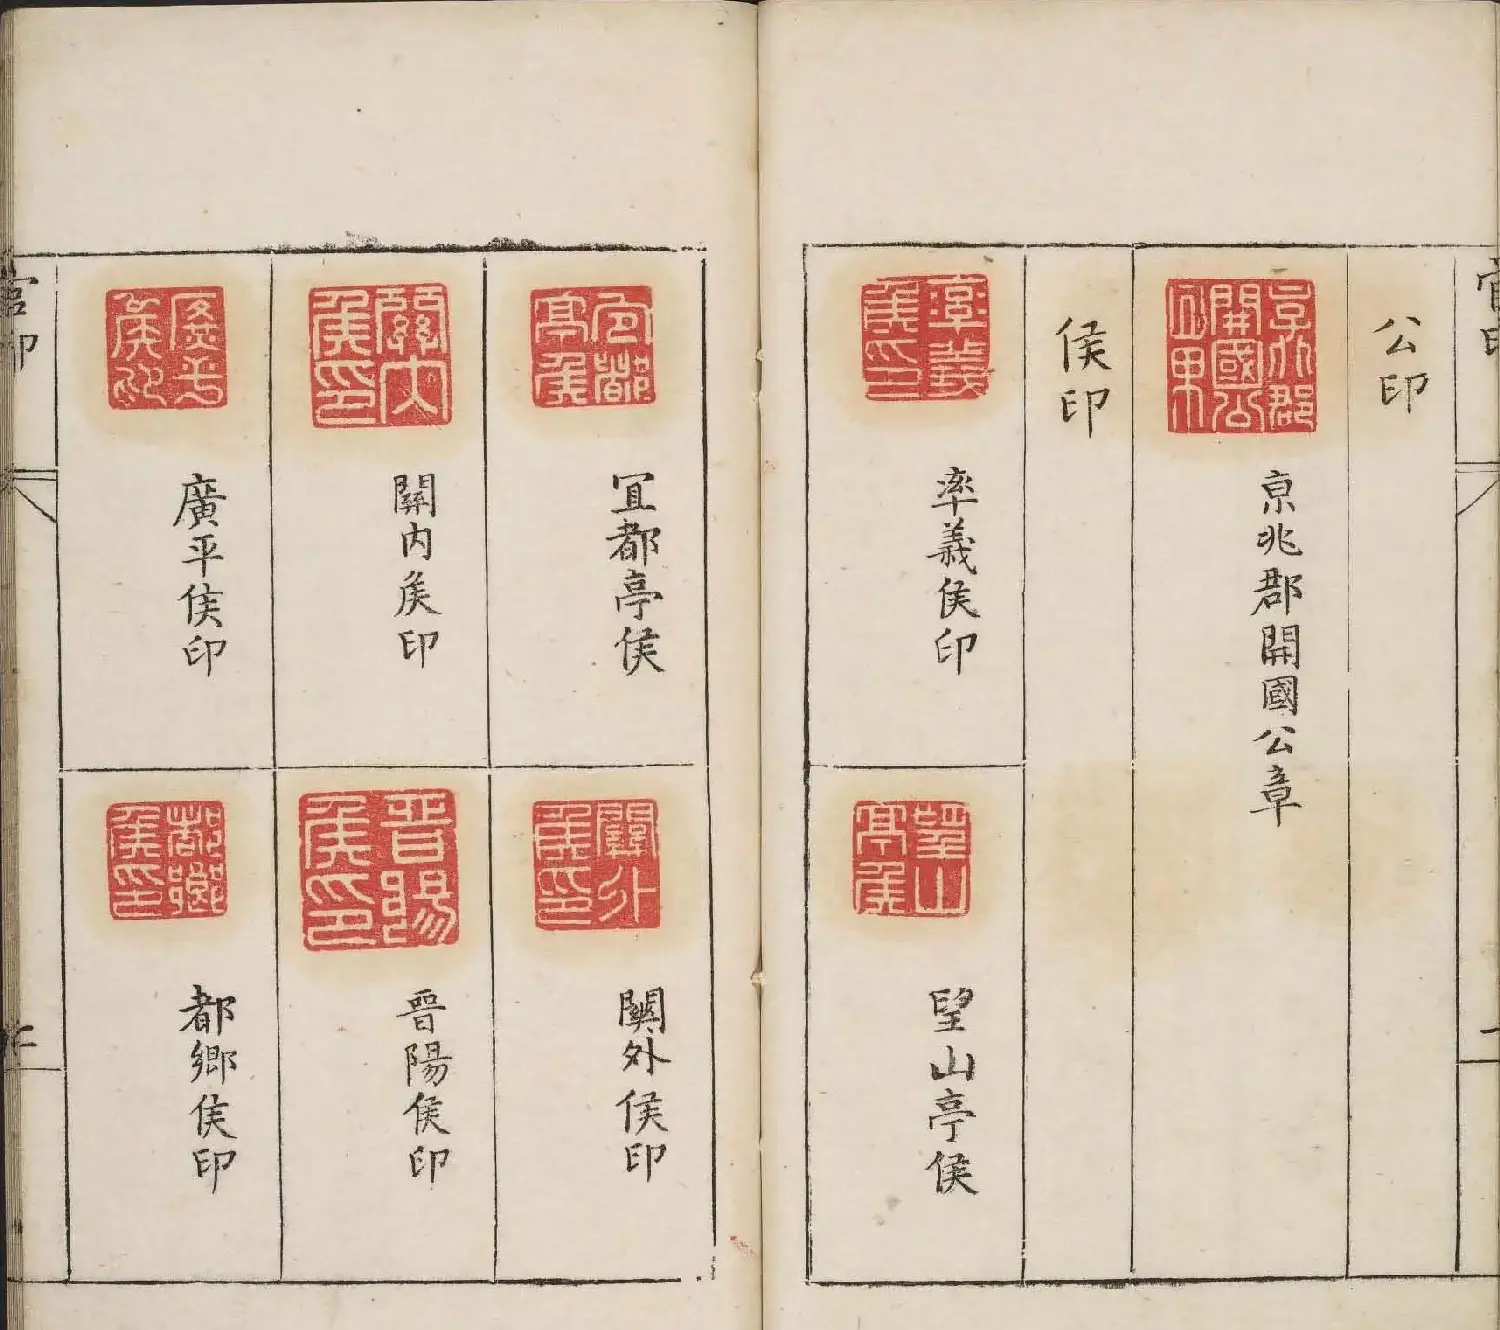 官印
公印
京兆郡開國公章
侯印
率義侯印
望山亭侯
宜都亭侯
關外侯印
關内侯印
晉陽侯印
廣平侯印
都鄉侯印
官印